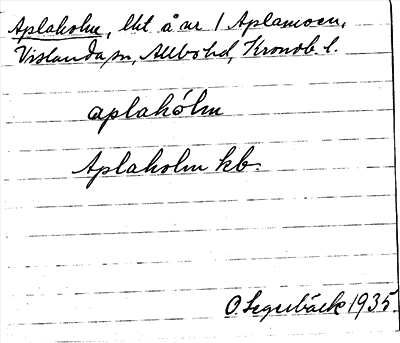 Aplaholm, lht å ar 1 Aplamoen,
Vislanda sn, Allbo hd, Kronob. l.
aplahólm
Aplaholm kb.
O. Segerbäck 1935.